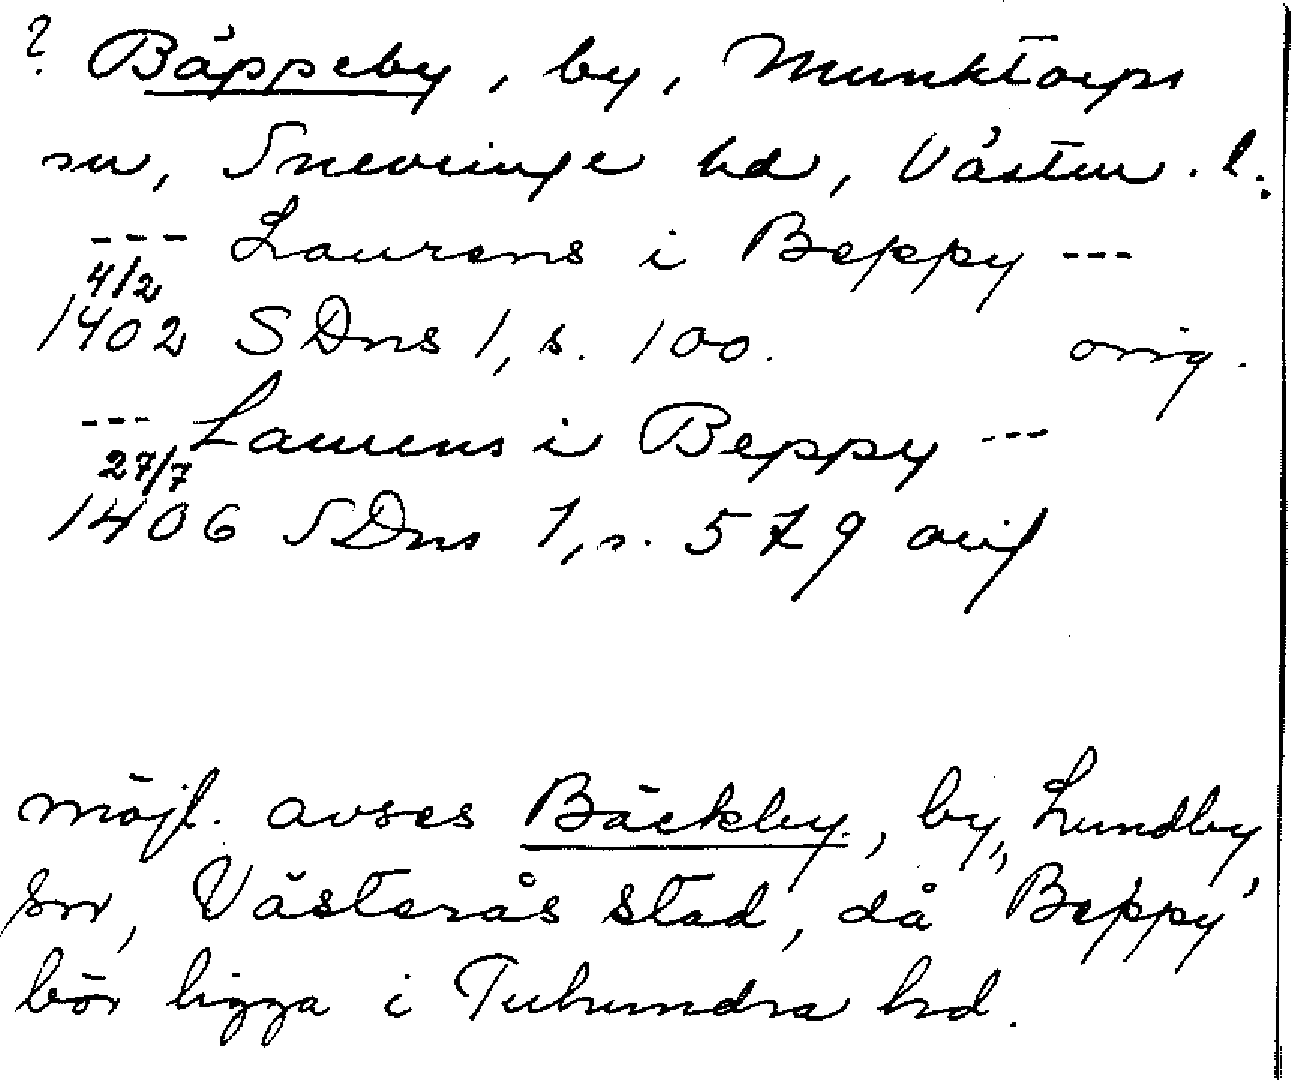 ? Bäppeby, by, Munktorps
sn, Snevringe hd, Västm. l.
--- Laurens i Beppy ---
4/2
1402 SDns 1, s. 100. orig.
--- Laurens i Beppy ---
27/7
1406 SDns 1, s. 579 orig
möjl. avses Bäckby, by, Lundby
sn, Västerås stad, då "Beppy"
bör ligga i Tuhundra hd.